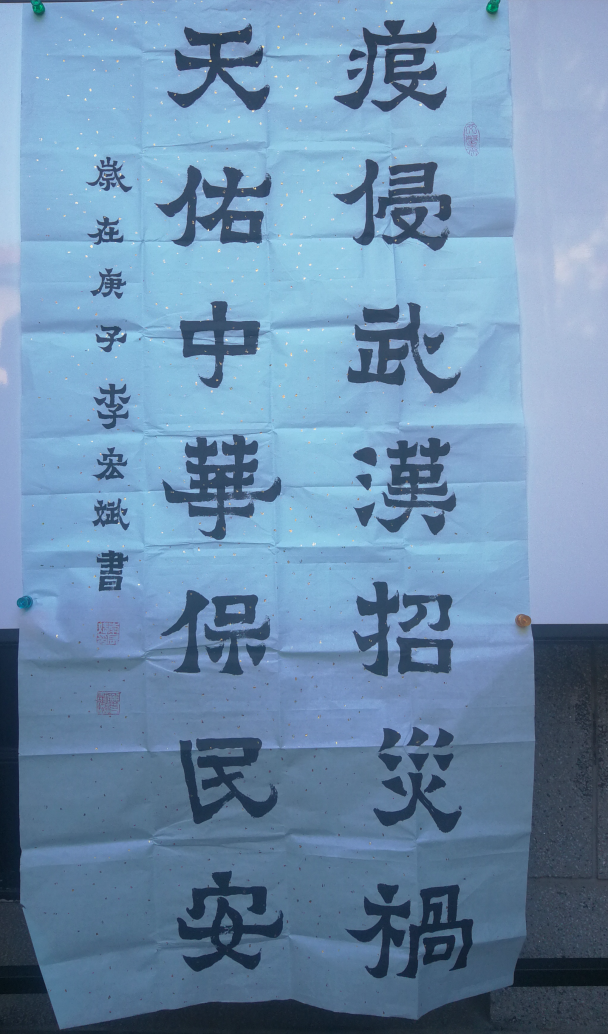 疫侵武漢招災禍
天佑中華保民安
歲在庚子李宏斌書